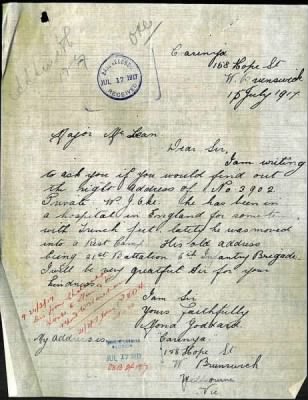 Carenya
158 Hope St
W. Brunswick
15 July 1917
BASE RECORDS
JUL 17 1917
RECEIVED
Major McLean
Dear Sir,
I am writing
to ask you if you would find out
the right address of No 3902
Private W. Jake. he has been
in a hospital in England for some
with trench feet lately he was moved
into a Rest Camp. His old address
being 21st Battalion 6th Infantry Brigade.
I will be very greatful Sir for your
kindness.
I am Sir
Yours faithfully
Mona Goddard
My address is Carenya
158 Hope St
W Brunswick
Melbourne
Vic
JUL 17 1917